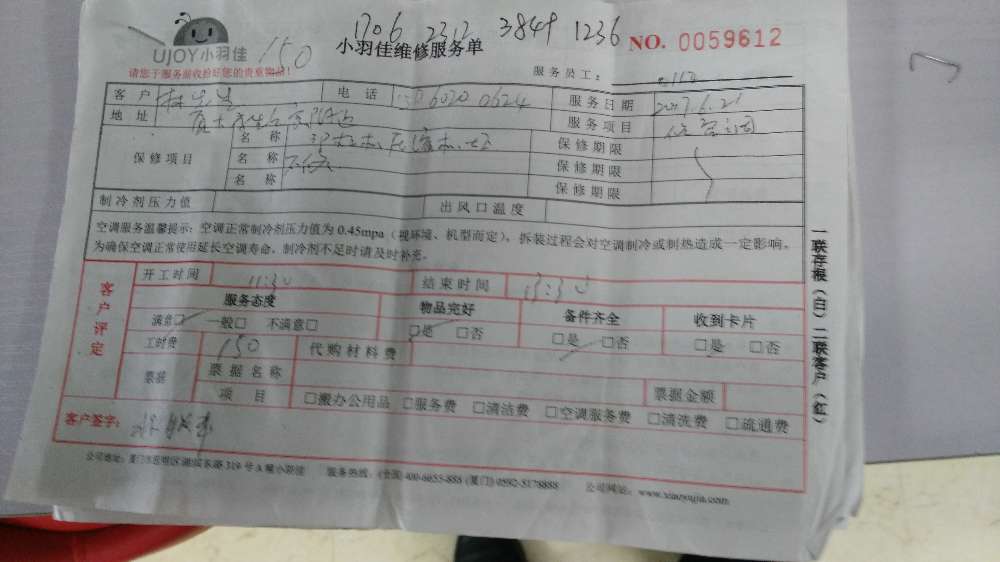 1706 2312 3849 1236
UJOY小羽佳 150
小羽佳维修服务单 NO. 0059612
请您于服务前收拾好您的贵重物品!
服务员工:
客户 林先生 电话 服务日期
地址 服务项目
保修项目 名称 保修期限
名称 保修期限
名称 保修期限
制冷剂压力值 出风口温度
空调服务温馨提示:空调正常制冷剂压力值为 0.45mpa(视环境、机型而定),拆装过程会对空调制冷或制热造成一定影响,
为确保空调正常使用延长空调寿命,制冷剂不足时请及时补充。
客户评定
开工时间 11:30 结束时间 13:30
服务态度 物品完好 备件齐全 收到卡片
满意□ 一般□ 不满意□ □是 □否 □是 □否 □是 □否
工时费 150 代购材料费
票据 票据名称 票据金额
项目 □搬办公用品 □服务费 □清洁费 □空调服务费 □清洗费 □疏通费
客户签字:
公司地址:厦门市思明区湖滨东路 319 号 A 幢小羽佳 服务热线:(全国) 400-6655-888 (厦门) 0592-5178888 公司网址:www.xiaoyujia.com
一联存根(白)二联客户(红)